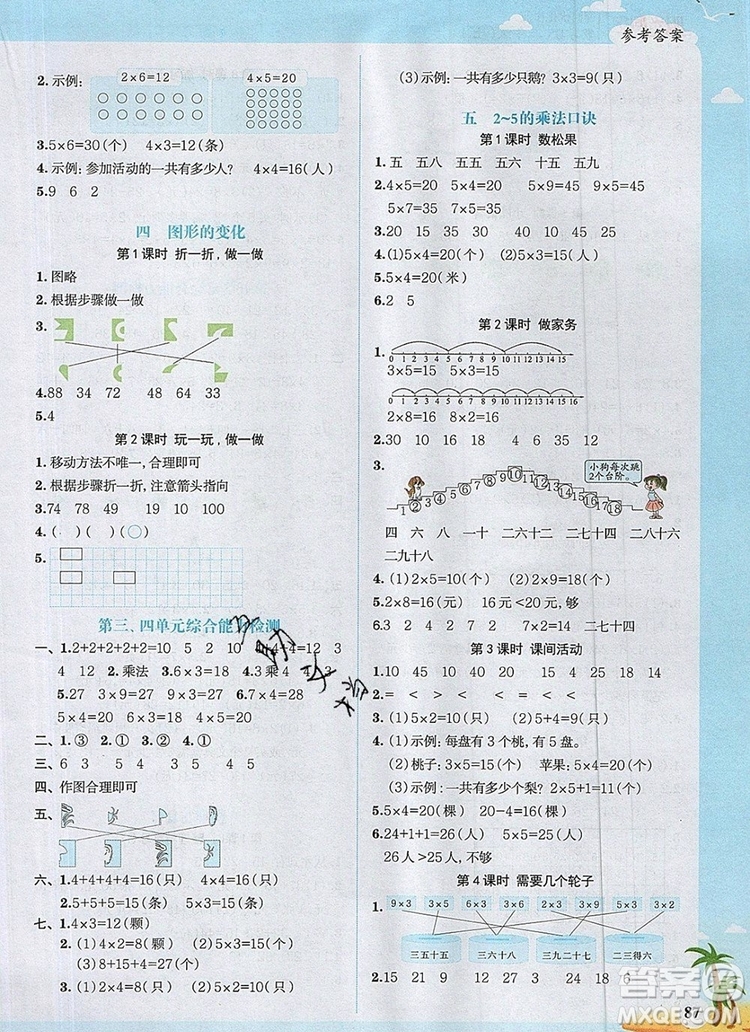 参考答案
2. 示例: 2×6=12 4×5=20
3.5×6=30(个) 4×3=12(条)
4. 示例: 参加活动的一共有多少人? 4×4=16(人)
5.9 6 2
四 图形的变化
第1课时 折一折,做一做
1. 图略
2. 根据步骤做一做
3.
4.88 34 72 48 64 33
5.4
第2课时 玩一玩,做一做
1. 移动方法不唯一,合理即可
2. 根据步骤折一折,注意箭头指向
3.74 78 49 19 10 100
4.( )( )(○)
5.
第三、四单元综合能力检测
一、1.2+2+2+2+2 5 2 10
4 12 2.乘法 3.6×3=18
5.27 3×9=27 6.7×4=28
5×4=20 4×5=20
二、1.③ 2.① 3.① 4.①
三、6 3 5 4 5 3 5
四、作图合理即可
五、
六、1.4+4+4+4=16(只) 4×4=16(只)
2.5+5+5=15(条) 3×5=15(条)
七、1.4×3=12(颗)
2.(1)4×2=8(只) (2)2×5=10(只)
(3)8+10=18(只)
3.(1)2×4=8(只) (2)2×6=12(只)
(3)示例:一共有多少只鹅? 3×3=9(只)
五 2~5的乘法口诀
第1课时 数松果
1. 五 五八 五五 五六 十五 五九
2.4×5=20 5×4=20 9×5=45
5×7=35 7×5=35
3.20 15 30 40 10 45 25
4.(1)5×4=20(个) (2)5×6=30(个)
5.5×4=20(米)
6.2 5
第2课时 做家务
1.
0 1 2 3 4 5 6 7 8 9 10 11 12 13 14 15
3×5=15
0 1 2 3 4 5 6 7 8 9 10 11 12 13 14 15 16
2×8=16 8×2=16
2.30 10 4 18 14 4 6 35 12
3.
小狗每次跳2个台阶。
四 六 八 一十 二六十二 二七十四 二八十六
二九十八
4.(1)2×5=10(个) (2)2×6=12(个)
5.2×8=16(元) 16元<20元 够
6.3 2 4 2 2 7×2=14 二七十四
第3课时 课间活动
1. 10 45 40 20 12 15 24 15
2.= < < < < =
3.(1)2×4=8(只) (2)5×3=15(只)
4.(1)示例:每盘有3个桃,有5盘。
(2)桃子:3×5=15(个) 苹果:5×4=20(个)
(3)示例:一共有多少个梨? 2×4=8(个)
5.5×4=20(棵) 20-4=16(棵)
6.24+1+1=26(人) 5×5=25(人)
26人>25人,不够
第4课时 需要几个轮子
1. 9×3 3×5 6×3 3×6 2×3 3×9 5×3 3×2
三五十五 三六十八 三九二十七 二三得六
2.15 21 9 12 24 18 6
答案
MXQE.COM
87